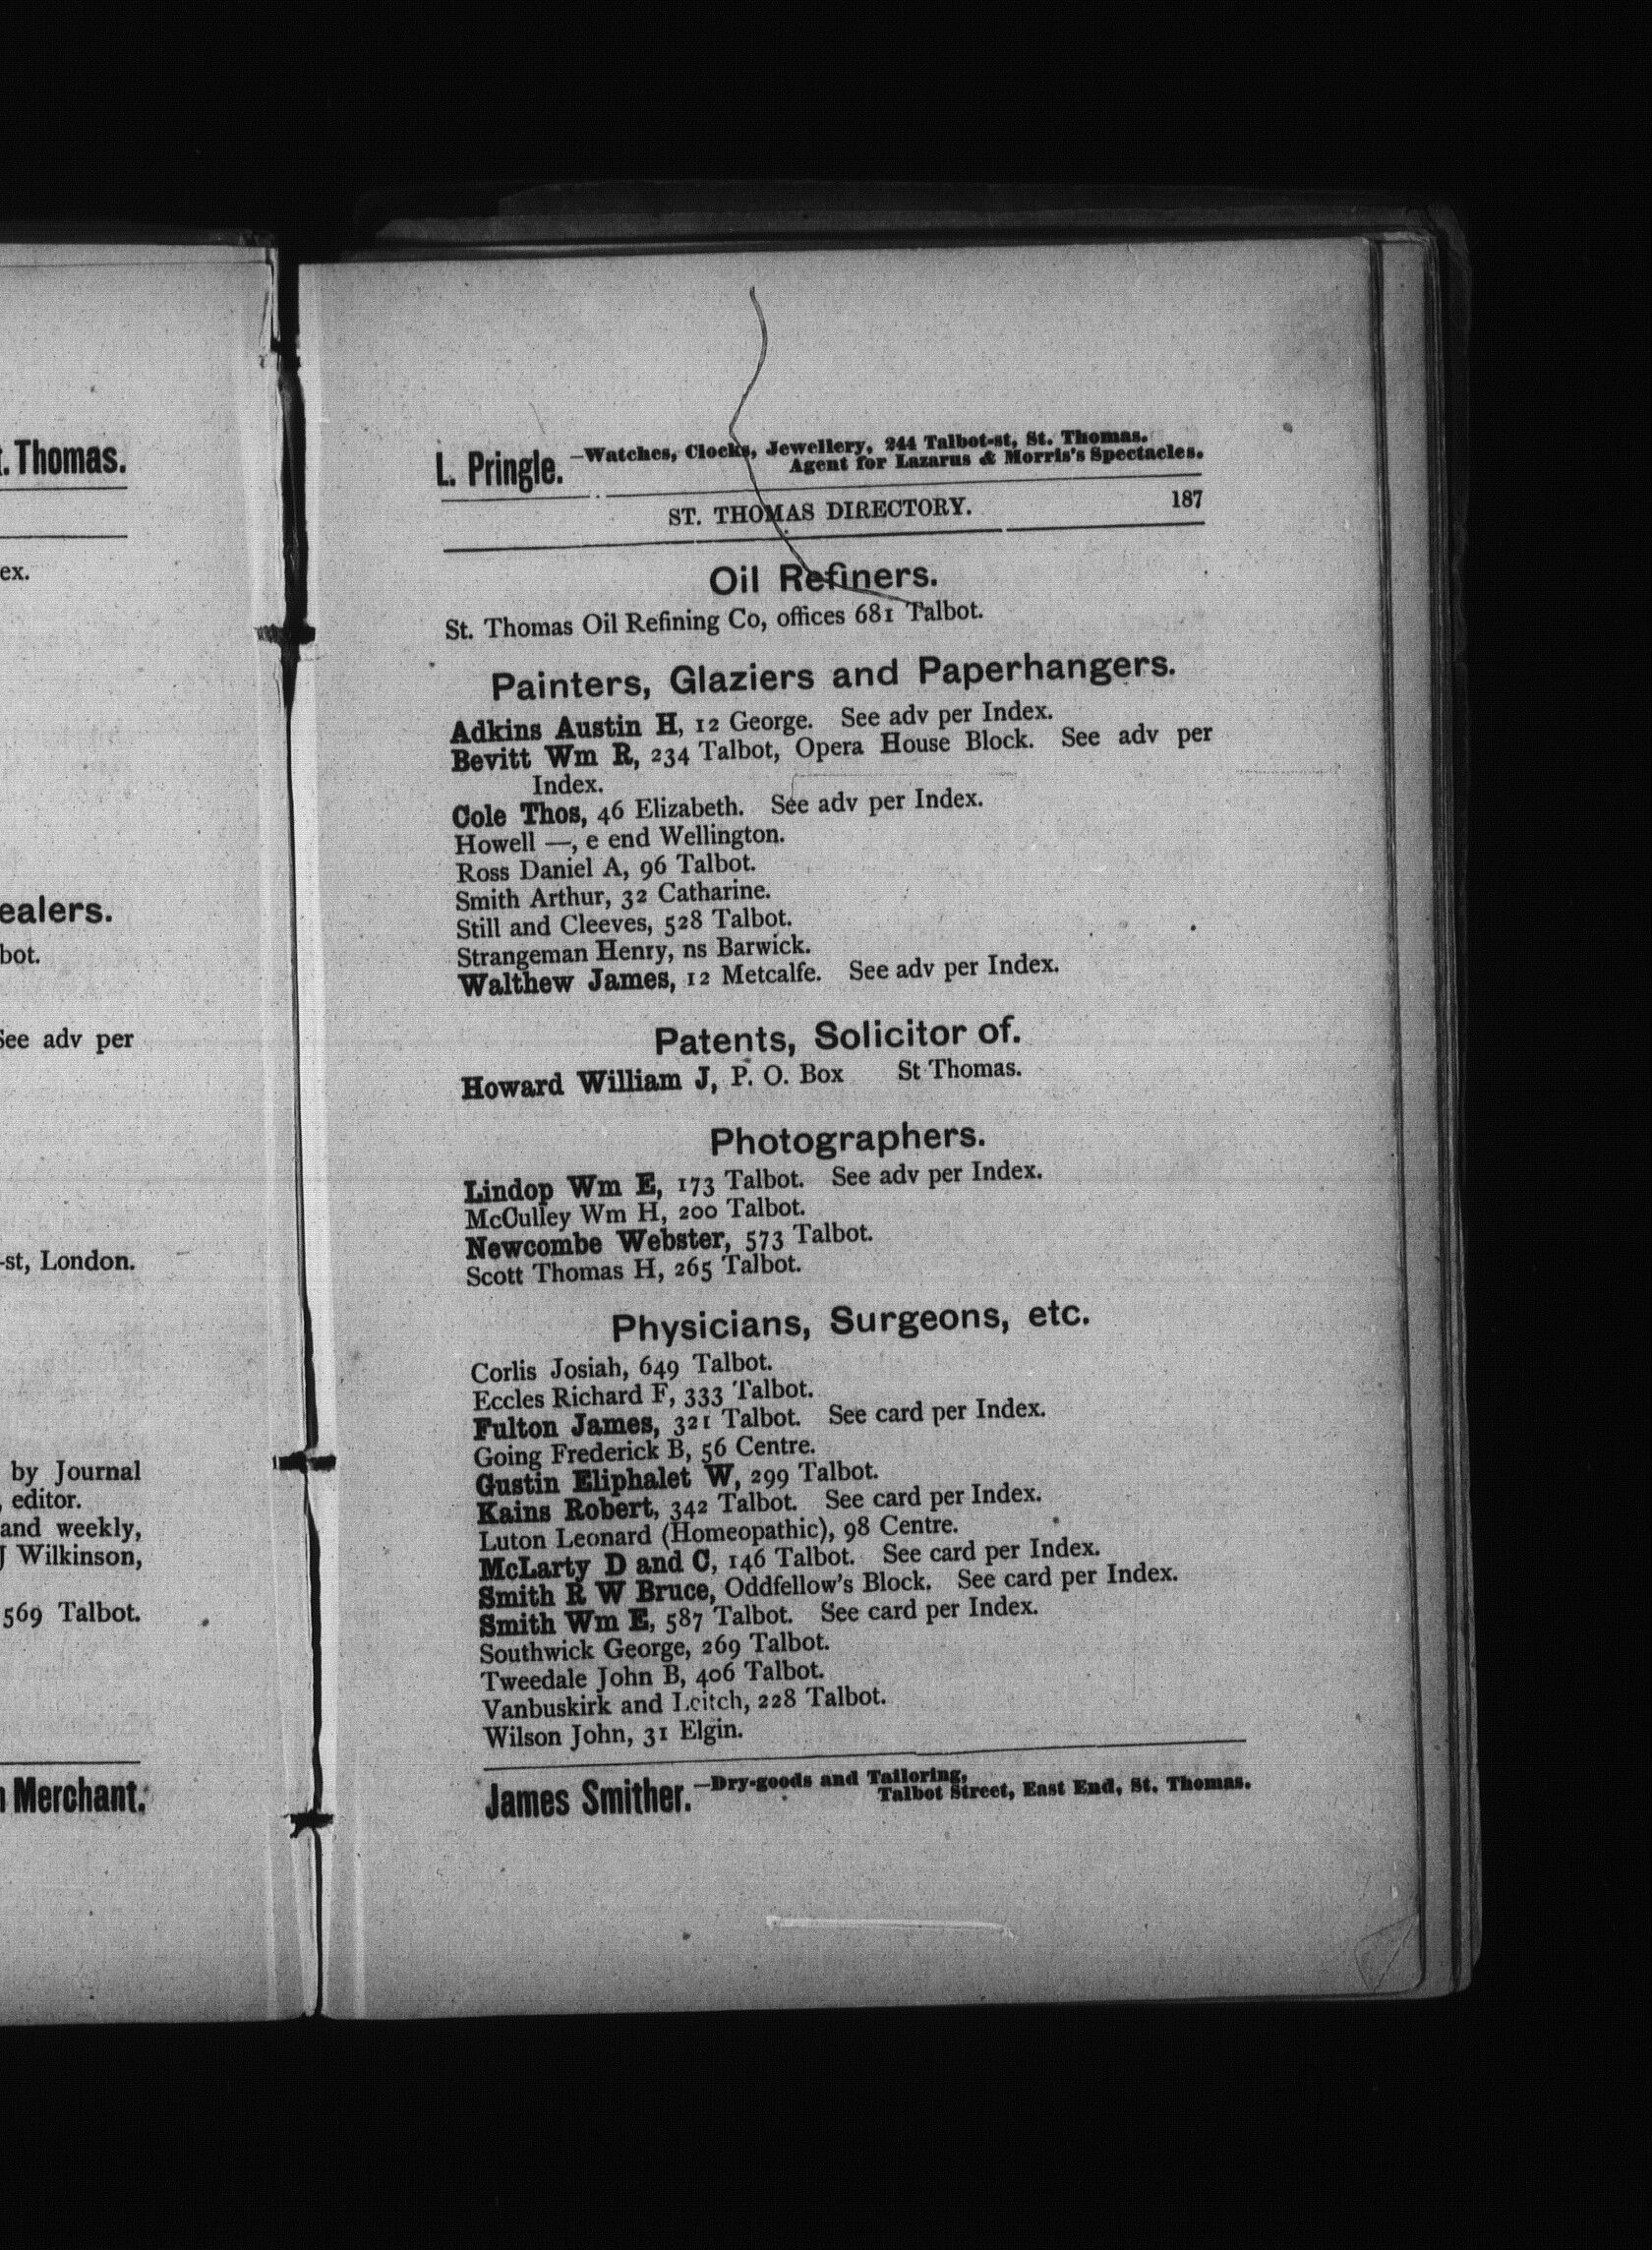 . Thomas.
ex.
ealers.
bot.
See adv per
-st, London.
by Journal
, editor.
and weekly,
J Wilkinson,
569 Talbot.
Merchant.
L. Pringle. —Watches, Clocks, Jewellery, 244 Talbot-st, St. Thomas.
Agent for Lazarus & Morris's Spectacles.
ST. THOMAS DIRECTORY. 187
Oil Refiners.
St. Thomas Oil Refining Co, offices 681 Talbot.
Painters, Glaziers and Paperhangers.
Adkins Austin H, 12 George. See adv per Index.
Bevitt Wm R, 234 Talbot, Opera House Block. See adv per
Index.
Cole Thos, 46 Elizabeth. See adv per Index.
Howell —, e end Wellington.
Ross Daniel A, 96 Talbot.
Smith Arthur, 32 Catharine.
Still and Cleeves, 528 Talbot.
Strangeman Henry, ns Barwick.
Walthew James, 12 Metcalfe. See adv per Index.
Patents, Solicitor of.
Howard William J, P. O. Box St Thomas.
Photographers.
Lindop Wm E, 173 Talbot. See adv per Index.
McCulley Wm H, 200 Talbot.
Newcombe Webster, 573 Talbot.
Scott Thomas H, 265 Talbot.
Physicians, Surgeons, etc.
Corlis Josiah, 649 Talbot.
Eccles Richard F, 333 Talbot.
Fulton James, 321 Talbot. See card per Index.
Going Frederick B, 56 Centre.
Gustin Eliphalet W, 299 Talbot.
Kains Robert, 342 Talbot. See card per Index.
Luton Leonard (Homeopathic), 98 Centre.
McLarty D and C, 146 Talbot. See card per Index.
Smith R W Bruce, Oddfellow's Block. See card per Index.
Smith Wm E, 587 Talbot. See card per Index.
Southwick George, 269 Talbot.
Tweedale John B, 406 Talbot.
Vanbuskirk and Leitch, 228 Talbot.
Wilson John, 31 Elgin.
James Smither. —Dry-goods and Tailoring,
Talbot Street, East End, St. Thomas.